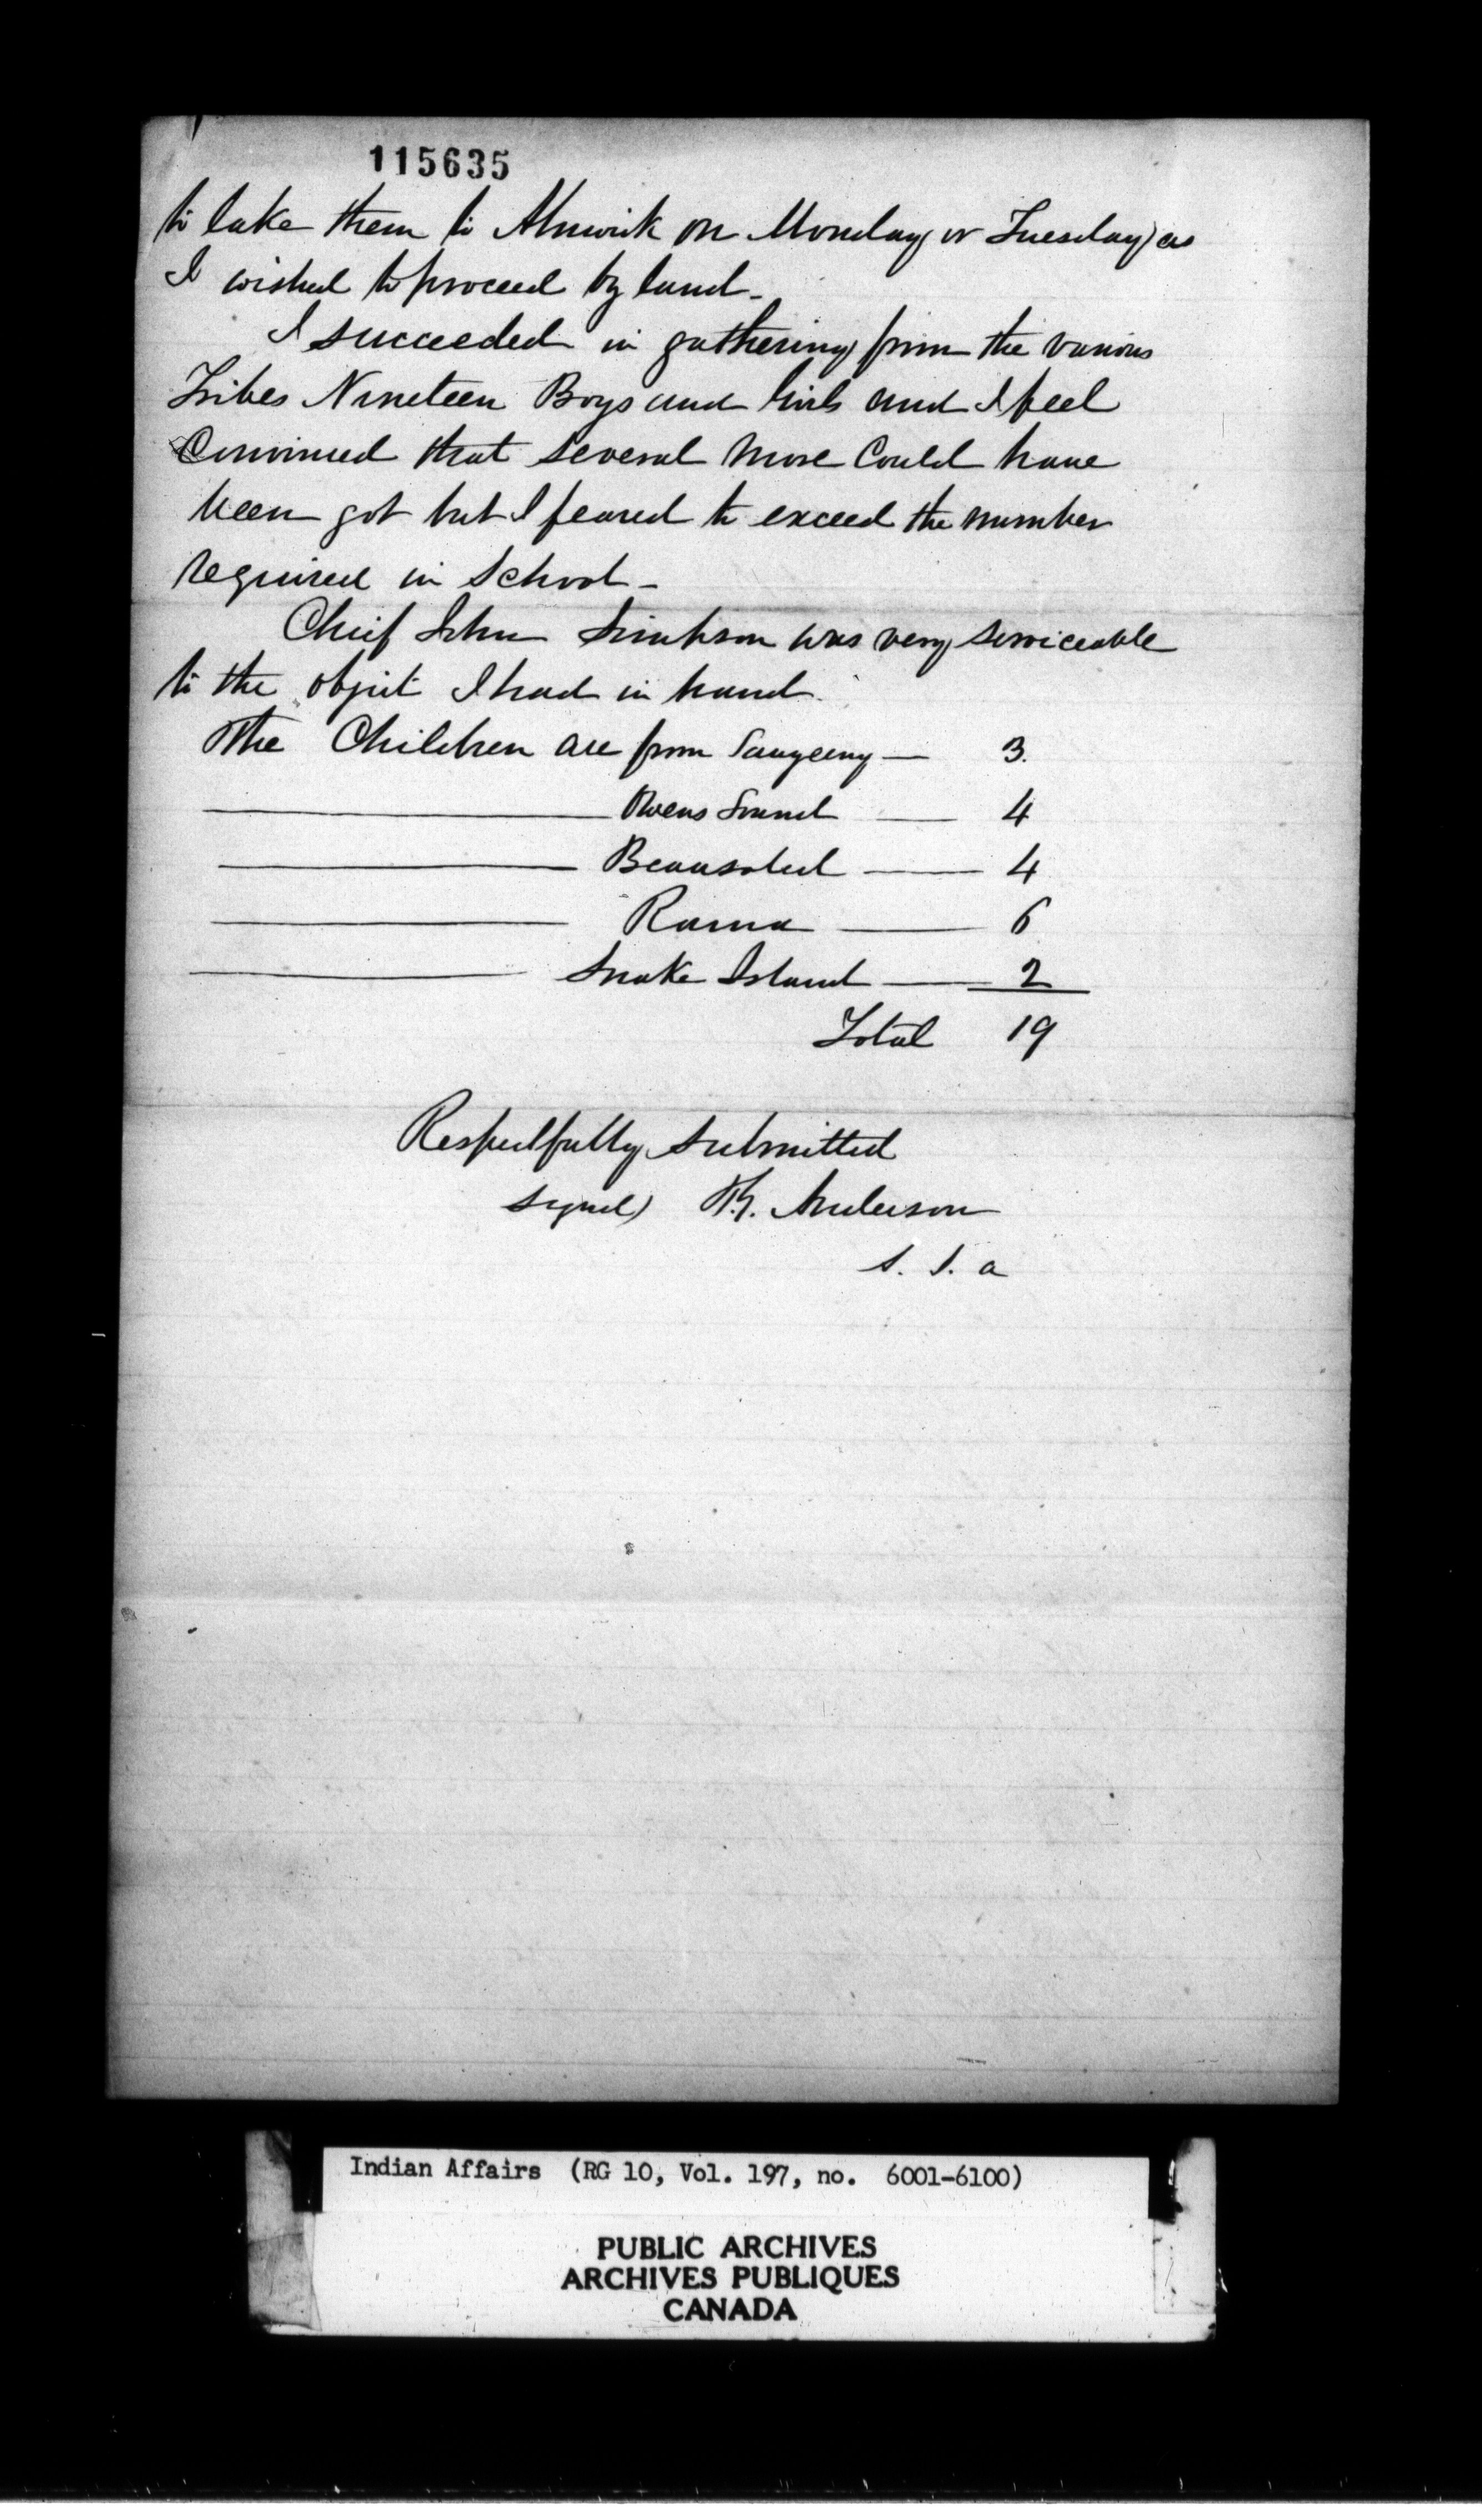 115635
to take them to Alnwick on Monday or Tuesday as
I wished to proceed by land -
I succeeded in gathering from the various
Tribes Nineteen Boys and Girls and I feel
Convinced that several more Could have
been got but I feared to exceed the number
required in School -
Chief John Simpson was very serviceable
to the object I had in hand.
The Children are from Saugeeng — 3.
——— Owens Sound — 4
——— Beausoleil — 4
——— Rama — 6
——— Snake Island — 2
Total 19
Respectfully submitted
signed) T.G. Anderson
S. I. a
Indian Affairs (RG 10, Vol. 197, no. 6001-6100)
PUBLIC ARCHIVES
ARCHIVES PUBLIQUES
CANADA